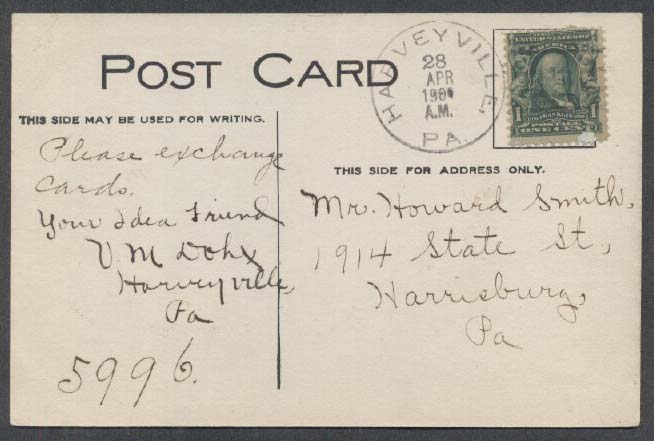 POST CARD
THIS SIDE MAY BE USED FOR WRITING.
Please exchange
cards.
Your Idea Friend
V M
Harveyville,
Pa
5996.
HARVEYVILLE,
28
APR
A.M.
PA.
UNITED STATES OF
AMERICA
1
1
ONE CENT
THIS SIDE FOR ADDRESS ONLY.
Mr. Howard Smith,
1914 State St,
Harrisburg,
Pa